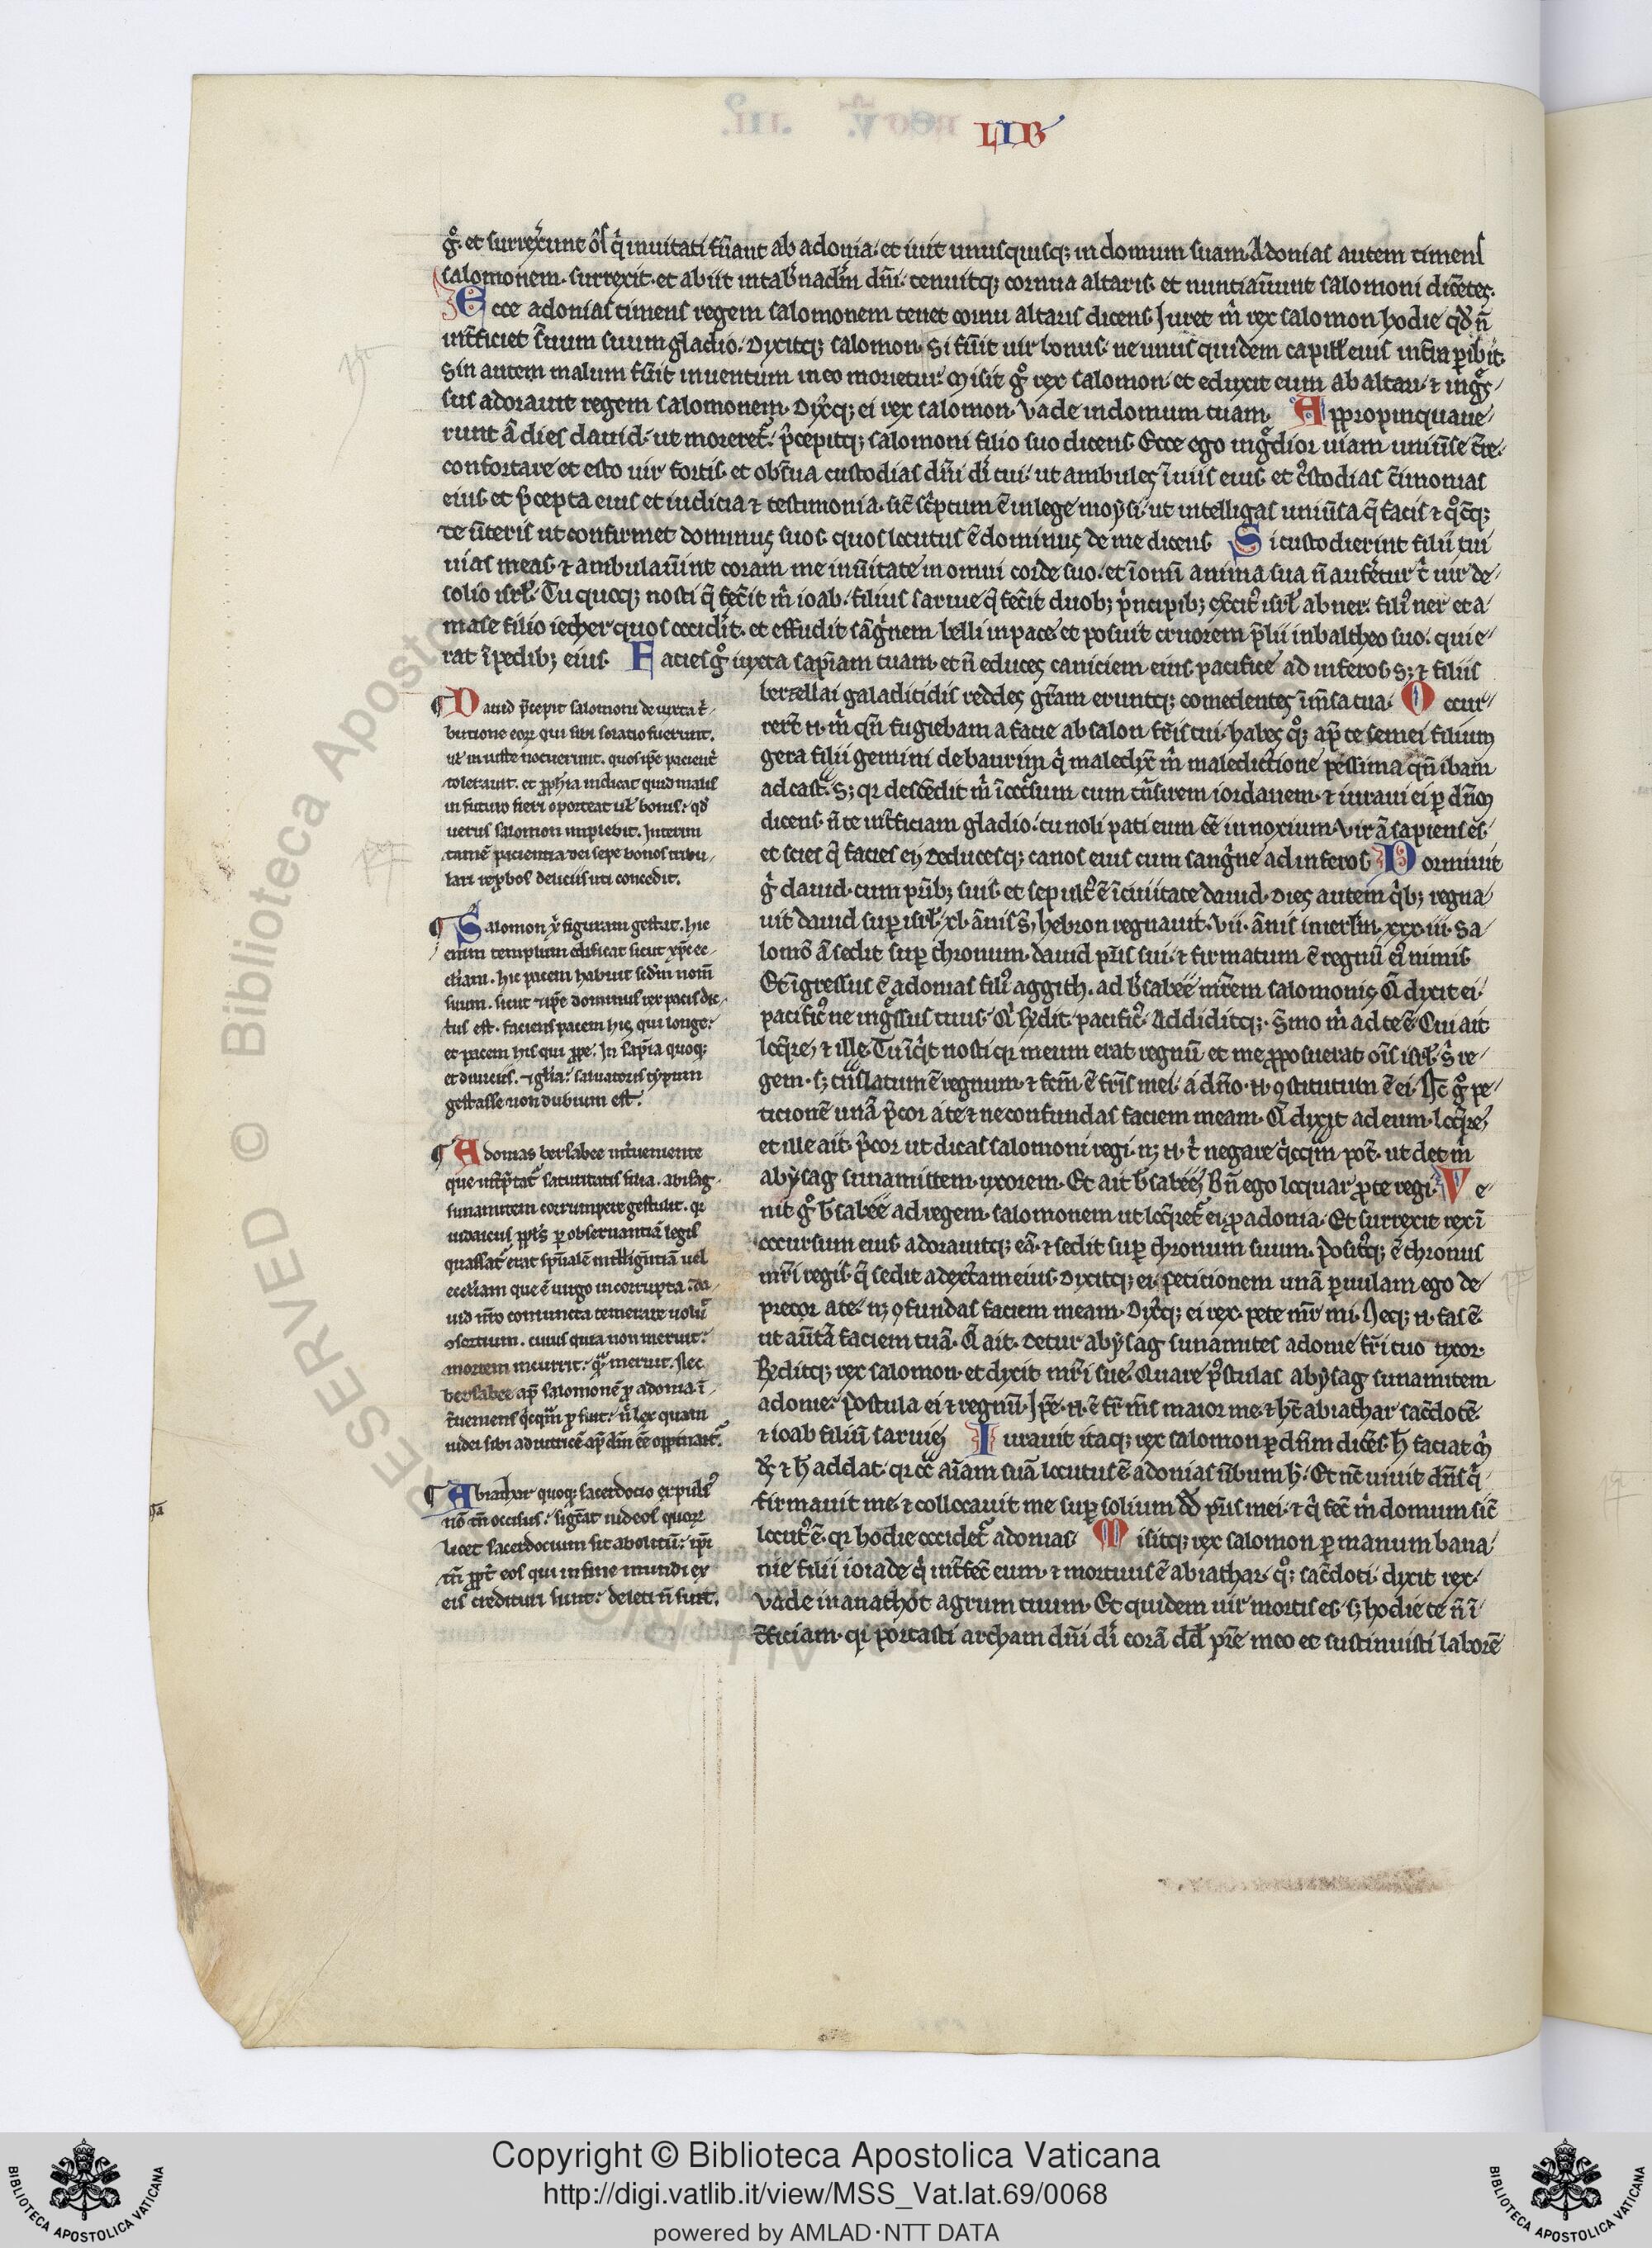 LIB
g̊. et surrex̄unt oẽs q̇ inuitati fuãnt ab adonia. et iuit unusquisq; in domum suam. Adonias autem timens
salomonem. surrexit. et abiit in tab̃nac̃lm dñi. tenuitq; cornua altaris. et nuntiau̾unt salomoni dicẽtes.
Ecce adonias timens regem salomonem tenet cornu altaris dicens Iuret m̊ rex salomon hodie qđ ñ
int̃ficiet s̃uum suum gladio. Dixitq; salomon. Si fũit uir bonus. ne unus quidem capill̃ eius in t̃ra ꝑibit.
Sin autem malum fũit inuentum in eo morietur. Misit g̊ rex salomon. et eduxit eum ab altari. ⁊ ing̃s
sus adorauit regem salomonem. Dix̃q; ei rex salomon. Vade in domum tuam. Appropinquaue
runt ã dies dauid. ut moreret̃. p̃cepitq; salomoni filio suo dicens. Ecce ego ing̃dior uiam uniũse t̃re.
confortare et esto uir fortis. et obs̃ua custodias dñi dĩ tui. ut ambules ĩ uiis eius. et c̃stodias c̃imonias
eius. et p̃cepta eius et iudicia ⁊ testimonia. sic̃ sc̃ptum ẽ in lege moysi. ut intelligas uniũsa q̃ facis ⁊ q̊cq;
te ũteris ut confirmet dominus suos. quos locutus ẽ dominus de me dicens Si custodierint filii tui
uias meas. ⁊ ambulaũint coram me in ũitate in omni corde suo. et ĩ om̃i anima sua ñ aufẽtur t̃ uir de
solio isrl̃. Tu quoq; nosti q̃ fec̃it m̊ ioab. filius saruie q̃ fec̃it duob; p̃ncipib; exc̃it9 isrl̃ abner. fili9 ner et a
mase filio iether quos occidit. et effudit sãg̃nem belli in pace et posuit cruorem p̃lii in baltheo suo. qui e
rat ĩ pedib; eius. Facies g̊ iuxta sap̃iam tuam. et ñ educes caniciem eius pacifice ad inferos s; ⁊ filiis
berzellai galaditidis reddes gr̃am eruntq; comedentes ĩ m̃sa tua. Occur
rer̃t .n. m̊ qñ fugiebam a facie absalon fr̃is tui. habes q̊; ap̃ te semei filium
gera filii gemini de baurim q̇ maledix̃ m̊ maledictione pessima qñ ibam
ad cast̃. s; qr descẽdit m̊ ĩ occ̃sum cum t̃nsirem iordanem. ⁊ iuraui ei ꝑ dñm
dicens. ñ te int̃ficiam gladio. tu noli pati eum eẽ innoxium. Vir ã sapiens es.
et scies q̃ facies ei deducesq; canos eius cum sang̃ne ad inferos Dormiuit
g̊ dauid. cum pr̃ib; suis. et sepult9 ẽ ĩ ciuitate dauid. Dies autem q̇b; regna
uit dauid suꝑ isrl̃. xl. ãnis s̃, hebron regnauit. vii. ãnis in ierlm̃. xxx.iii. Sa
lomõ ã sedit suꝑ thronum. dauid pr̃is sui. ⁊ firmatum ẽ regnũ ei9 nimis.
Et ĩgressus ẽ adonias fili9 aggith. ad b̃sabeẽ mr̃em salomonis. Q̃ dixit ei.
pacific9 ne ing̃ssus tuus. Q̇ r̃ndit. pacific9. Addiditq;. S̃mo m̊ ad te ẽ. Cui ait
loq̃re, ⁊ ille. Tu ĩq̇t nosti qr meum erat regnũ et me p̃posuerat oĩs isrl̃. s̃ re
gem. s; t̃nslatum ẽ regnum. ⁊ fcm̃ ẽ fr̃is mei. a dño .n. ꝯstitutum ẽ ei. Nc̃ g̊ pe
ticionẽ unã p̃cor a te ⁊ ne confundas faciem meam. Q̃ dixit ad eum. loq̃re,
et ille ait. p̃cor ut dicas salomoni regi. n; .n. t̃ negare q̇cq̃m pot̃. ut det m̊
abysag sunamittem. uxorem. Et ait b̃sabeẽ, Bñ ego loquar ꝓ te regi. Ve
nit g̊ b̃sabeẽ ad regem. salomonem ut loq̃ret̃ ei ꝓ adonia. Et surrexit rex ĩ
occursum eius adorauitq; eã. ⁊ sedit suꝑ thronum suum. posit9q; ẽ thronus
mr̃i regis. q̃ sedit ad dext̃am eius. Dixitq; ei. peticionem unã ꝑuulam ego de
precor a te. n; ꝯfundas faciem meam. Dix̃q; ei rex. pete mr̃ mi. Neq; .n. fas ẽ
ut aũtã faciem tuã. Q̃ ait. Detur abysag sunamites adonie fr̃i tuo uxor.
R̃nditq; rex salomon. et dixit mr̃i sue. Quare postulas abysag sunamitem
adonie. postula ei ⁊ regnũ. Ip̃e .n. ẽ fr̃ m̃s maior me. ⁊ h̃t abiathar sac̃dotẽ.
⁊ ioab filiũ saruie, Iurauit itaq; rex salomon ꝑ dñm dicẽs. h̃ faciat m̊
ds̃ ⁊ h̃ addat. qr cc̃ aĩam suã locutus ẽ adonias ũbum h̃. Et nc̃ uiuit dñs q̇
firmauit me. ⁊ collocauit me suꝑ solium dd̃ pr̃is mei. ⁊ q̇ fec̃ m̊ domum sic̃
locut9 ẽ. qr hodie occidet̃ adonias. Misitq; rex salomon ꝑ manum bana
nie filii ioiade q̇ int̃fec̃ eum. ⁊ mortuus ẽ abiathar q̊; sac̃doti. dixit rex.
Vade in anathot agrum tuum. Et quidem uir mortis es. s; hodie te ñ ĩ
t̃ficiam. qr portasti archam dñi dĩ corã dd̃ pr̃e meo et sustinuisti laborẽ
¶ Dauid p̃cepit salomoni de iuxta t̃
butione eorꝝ qui sibi soratio fuerunt.
ut̃ iniuste nocuerunt. quos ip̃e pacient̃
tolerauit. et ꝓph̃ia indicat quid malis
in futuro fieri oporteat ut̃ bonis. qđ
uerus salomon implebit. Interim
tamẽ pacientia dei sepe bonos tribu
lari rep̃bos deliciis uti concedit.
¶ Salomon xp̃i figuram gestat. hic
enim templum edificat sicut xp̃c ec
cl̃iam. hic pacem habuit sedm̃ nom̃
suum. sicut ⁊ ip̃e dominus rex pacis dic
tus est. faciens pacem his qui longe.
et pacem his qui ꝓpe. In sap̃ia quoq;
et diuitiis. ⁊ gl̃ia. saluatoris typum
gestasse non dubium est.
¶ Adonias bersabee int̃ueniente
que int̃p̃tat̃ saturitatis filia. abisag
sunamitem corrumpere gestiuit. qr
iudaicus ppl̃s ꝑ obseruantiã legis
quassat̃ erat sp̃ualẽ intelligẽtiã uel
eccl̃iam que ẽ uirgo incorrupta. da
uid nr̃o coniuncta temerare uolũ
ꝯsortium. cuius quia non meruit.
mortem incurrit. q̃ meruit. Nec
bersabee ap̃ salomonẽ ꝓ adonia ĩ
t̃ueniens q̇cq̃m ꝓfuit. ñ lex quam
iudei sibi adiutricẽ ap̃ dm̃ eẽ oppinant̃.
¶ Abiathar quoq; sacerdocio expuls9
nõ tñ occisus. sig̃cat iudeos quorꝝ
licet sacerdocium sit abolitũ. ip̃i
tñ ꝓpt̃ eos qui in fine mundi ex
eis credituri sunt. deleti ñ sunt.
Copyright © Biblioteca Apostolica Vaticana
http://digi.vatlib.it/view/MSS_Vat.lat.69/0068
powered by AMLAD·NTT DATA
BIBLIOTECA APOSTOLICA VATICANA
BIBLIOTECA APOSTOLICA VATICANA